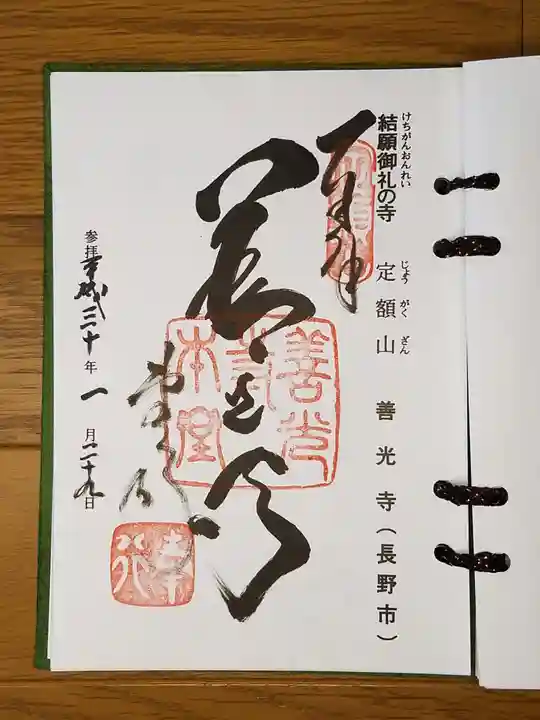 けちがんおんれい
結願御礼の寺
じょうがくざん
定額山 善光寺(長野市)
奉拝
善光寺
本堂
善光寺本堂
奉行
参拝平成三十年一月二十九日